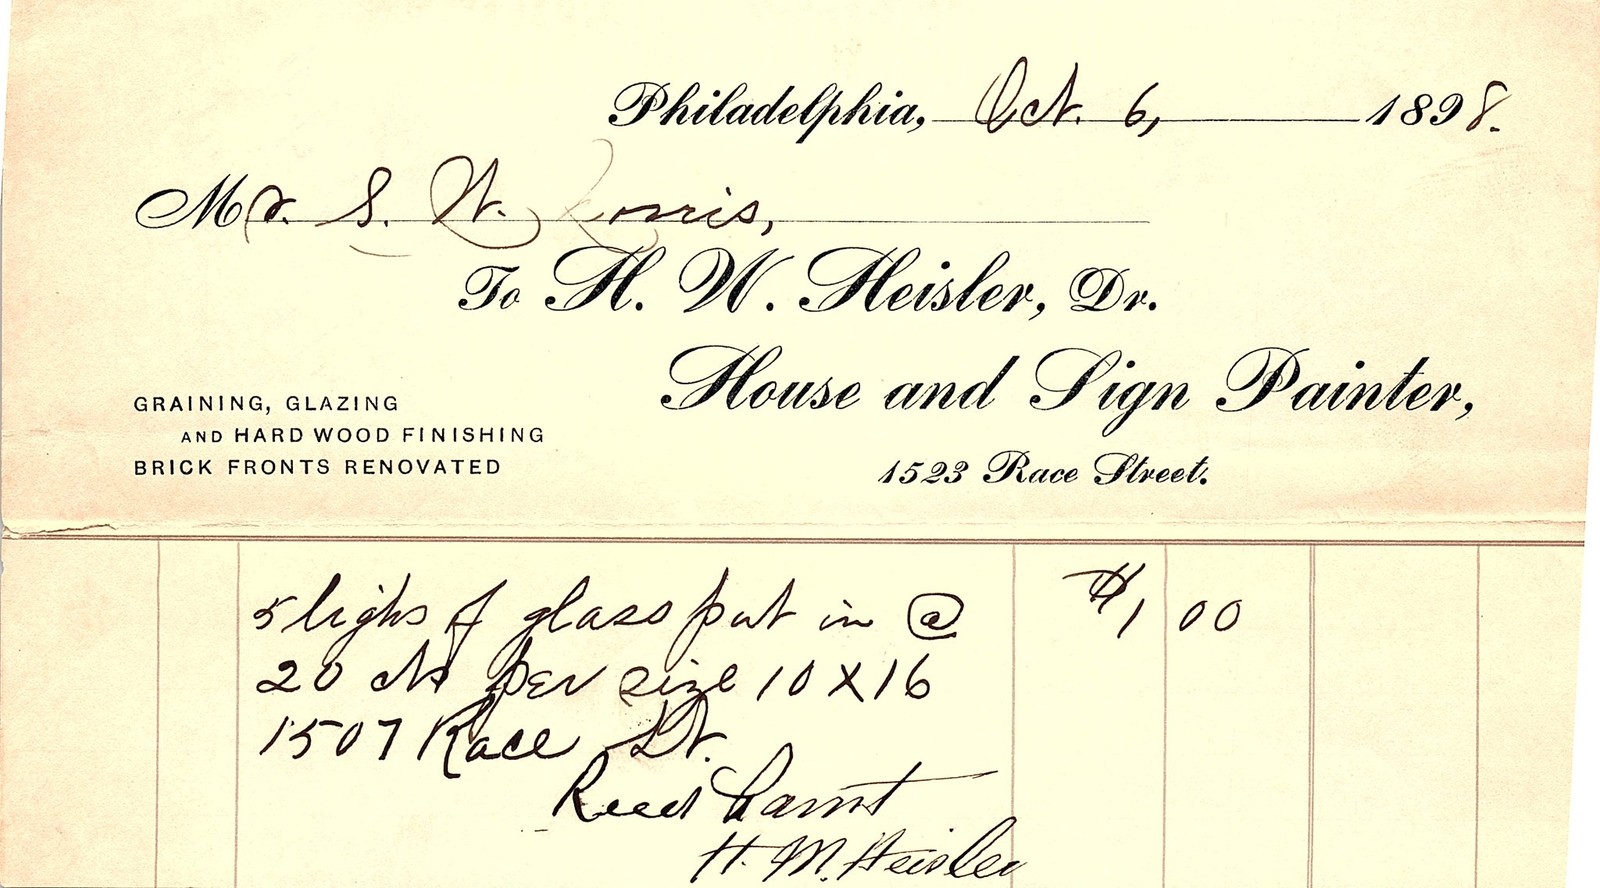 Philadelphia, Oct. 6, 1898.
Mr. S. W. Lorris,
To H. W. Heisler, Dr.
House and Sign Painter,
GRAINING, GLAZING
AND HARD WOOD FINISHING
BRICK FRONTS RENOVATED
1523 Race Street.
5 lighs of glass put in @ $1 00
20 cts per size 10 X 16
1507 Race St.
Recd Paymt
H. W. Heisler